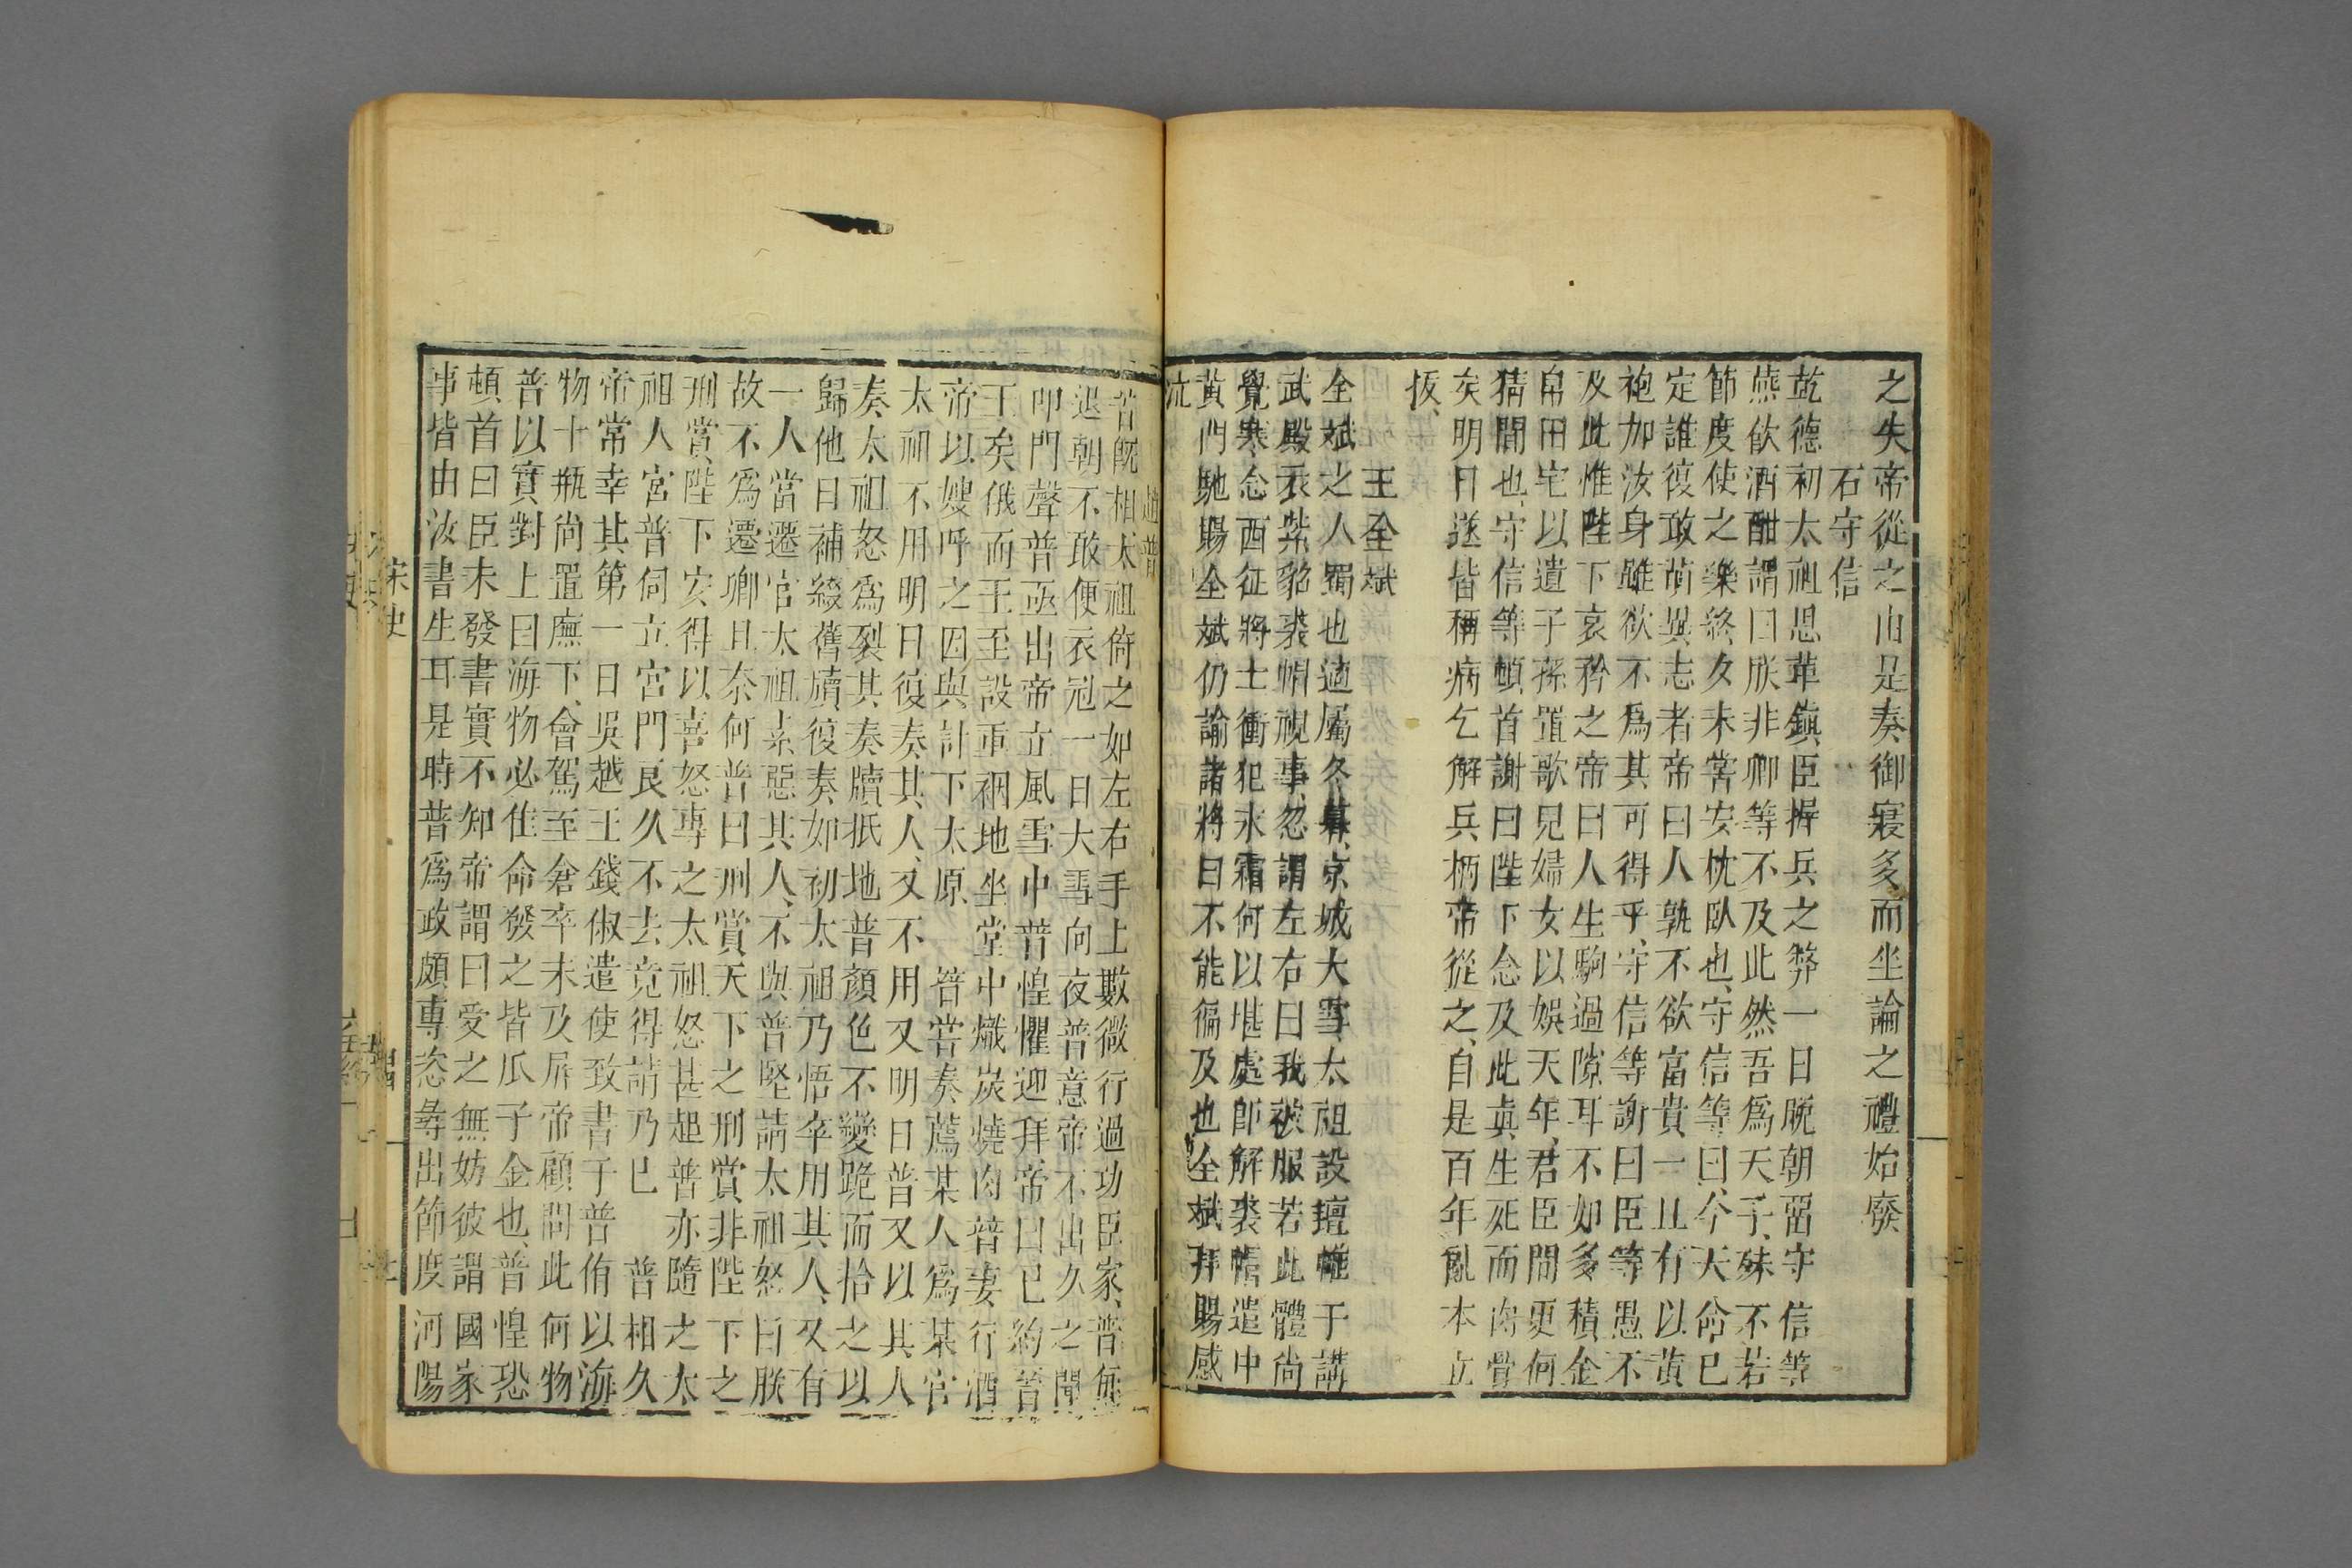 之失帝從之由是奏御寖多而坐論之禮始廢
石守信
乾德初太祖思革鎮臣握兵之弊一日晚朝畱守信等
燕飲酒酣謂曰朕非卿等不及此然吾爲天子殊不若
節度使之樂終夕未嘗安枕臥也守信等曰今天命已
定誰復敢萌異志者帝曰人孰不欲富貴一旦有以黃
袍加汝身雖欲不爲其可得乎守信等謝曰臣等愚不
及此惟陛下哀矜之帝曰人生駒過隙耳不如多積金
帛田宅以遺子孫置歌兒婦女以娛天年君臣間更何
猜間也守信等頓首謝曰陛下念及此眞生死而肉骨
矣明日遂皆稱病乞解兵柄帝從之自是百年亂本立
拔
王全斌
全斌之人蜀也適屬冬暮京城大雪太祖設氊帷于講
武殿衣紫貂裘帽視事忽謂左右曰我被服若此體尚
覺寒念西征將士衝犯氷霜何以堪處卽解裘帽遣中
黃門馳賜全斌仍諭諸將曰不能徧及也全斌拜賜感
泣
趙普
普旣相太祖倚之如左右手上數微行過功臣家普無
退朝不敢便衣冠一日大雪向夜普意帝不出久之聞
叩門聲普亟出帝立風雪中普惶懼迎拜帝曰已約晉
王矣俄而王至設重裀地坐堂中熾炭燒肉普妻行酒
帝以嫂呼之因與計下太原 普嘗奏薦某人爲某官
太祖不用明日復奏其人又不用又明日普又以其人
奏太祖怒爲裂其奏牘抵地普顏色不變跪而拾之以
歸他日補綴舊牘復奏如初太祖乃悟卒用其人又有
一人當遷官太祖素惡其人不與普堅請太祖怒曰朕
故不爲遷卿且奈何普曰刑賞天下之刑賞非陛下之
刑賞陛下安得以喜怒專之太祖怒甚起普亦隨之太
祖人宮普伺立宮門良久不去竟得請乃已 普相久
帝常幸其第一日吳越王錢俶遣使致書于普侑以海
物十瓶尚置廡下會駕至倉卒未及屏帝顧問此何物
普以實對上曰海物必佳命發之皆瓜子金也普惶恐
頓首曰臣未發書實不知帝謂曰受之無妨彼謂國家
事皆由汝書生耳是時普爲政頗專恣彝出節度河陽
宋史